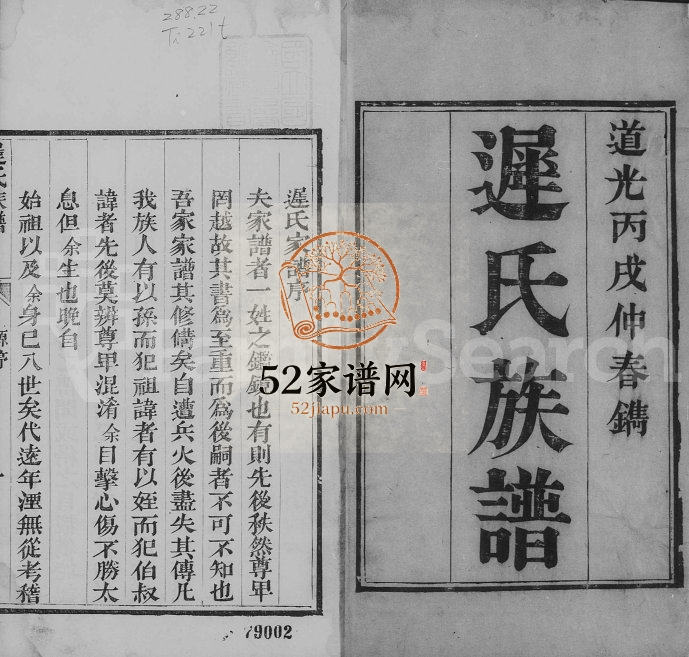 道光丙戌仲春鐫
遲氏族譜
288.22
T. 221t
遲氏家譜序
夫家譜者一姓之鑑鏡也有則先後秩然尊卑
罔越故其書爲至重而爲後嗣者不可不知也
吾家家譜其修備矣自遭兵火後盡失其傳凡
我族人有以孫而犯祖諱者有以姪而犯伯叔
諱者先後莫辨尊卑混淆余目擊心傷不勝太
息但余生也晚自
始祖以及余身已八世矣代遠年湮無從考稽
遲氏族譜
序
一
79002
52家谱网
52jiapu.com